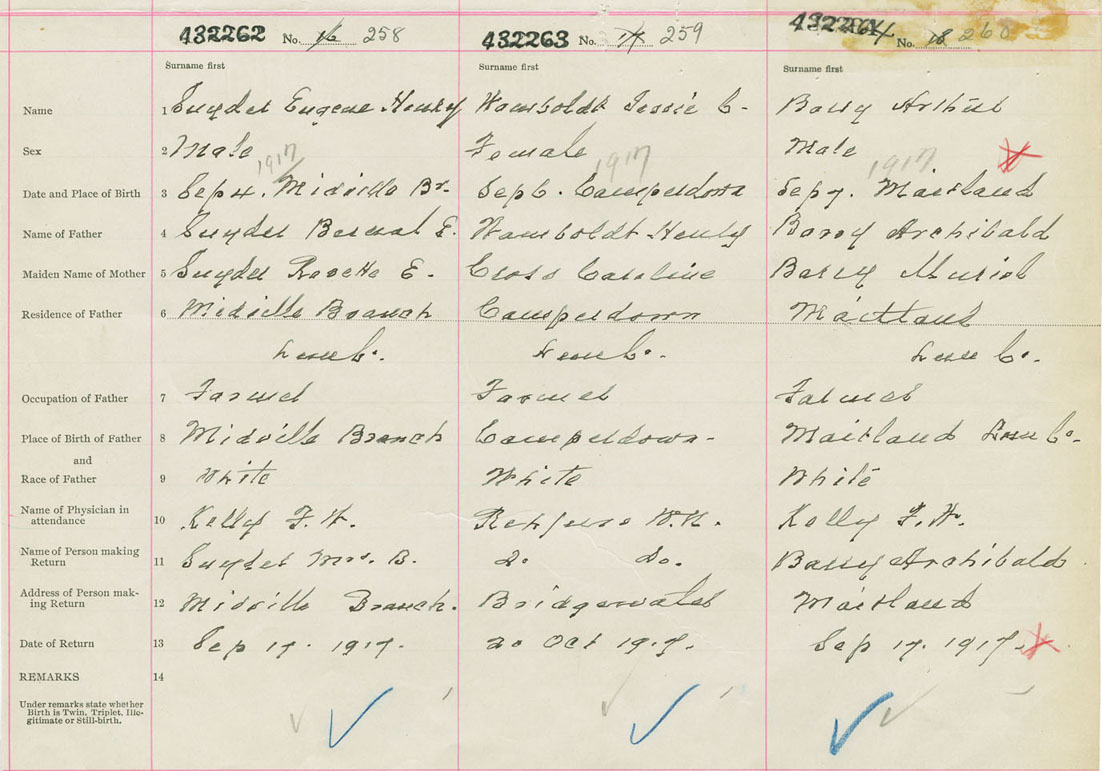 432262 No. 16 258 432263 No. 17 259 432264 No. 18 260
Surname first Surname first Surname first
Name 1 Snyder Eugene Henry Wamboldt Jessie C- Barry Arthur
Sex 2 Male Female Male
1917 1917 1917
Date and Place of Birth 3 Sep 4. Midville Br. Sep 6. Camperdown Sep 7. Maitland
Name of Father 4 Snyder E. Wamboldt Henry Barry Archibald
Maiden Name of Mother 5 Snyder E. Cross Caroline Barry Muriel
Residence of Father 6 Midville Branch Camperdown Maitland
Lun Co. Lun Co. Lun Co.
Occupation of Father 7 Farmer Farmer Farmer
Place of Birth of Father 8 Midville Branch Camperdown- Maitland Lun Co.
and
Race of Father 9 White White White
Name of Physician in
attendance 10 Kelly F. W. Rehfuss W. N. Kelly F. W.
Name of Person making
Return 11 Snyder Mrs. B. Do. Do. Barry Archibald
Address of Person mak-
ing Return 12 Midville Branch. Bridgewater Maitland
Date of Return 13 Sep 17. 1917. 20 Oct 1917. Sep 17. 1917.
REMARKS 14
Under remarks state whether
Birth is Twin, Triplet, Ille-
gitimate or Still-birth.